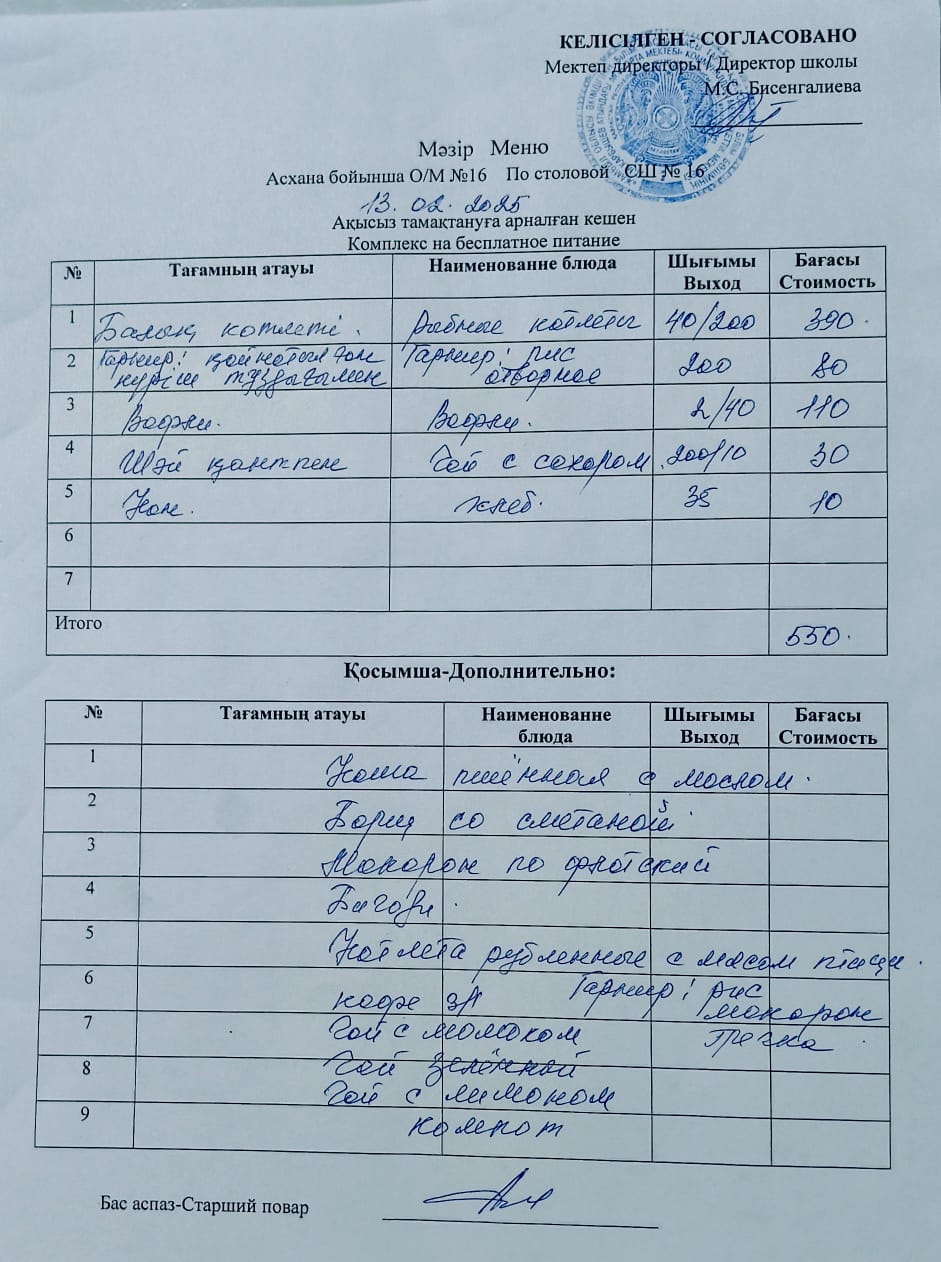 КЕЛІСІЛГЕН - СОГЛАСОВАНО
Мектеп директоры / Директор школы
М.С. Бисенгалиева
Мәзір Меню
Асхана бойынша О/М №16 По столовой СШ № 16
13. 02. 2025
Ақысыз тамақтануға арналған кешен
Комплекс на бесплатное питание
№ Тағамның атауы Наименованне блюда Шығымы Выход Бағасы Стоимость
1 Балық котлеті. Рыбные котлеты 40/200 390.
2 Гарнир: қайнатылған күріш тұздығымен Гарнир: рис отворное 200 80
3 Вафли. Вафли. 2/40 110
4 Шәй қантпен Чай с сахаром. 200/10 30
5 Нан. хлеб. 35 10
6
7
Итого 550.
Қосымша-Дополнительно:
№ Тағамның атауы Наименованне блюда Шығымы Выход Бағасы Стоимость
1 Каша пшённая с маслом.
2 Борщ со сметаной.
3 Макарон по флотский
4 Бигоди.
5 Котлета рубленные с мясом птицы.
6 кофе 3/1 Гарнир: рис макарон
7 Чай с молоком гречка.
8 Чай зелённой
Чай с лимоном
9 компот
Бас аспаз-Старший повар